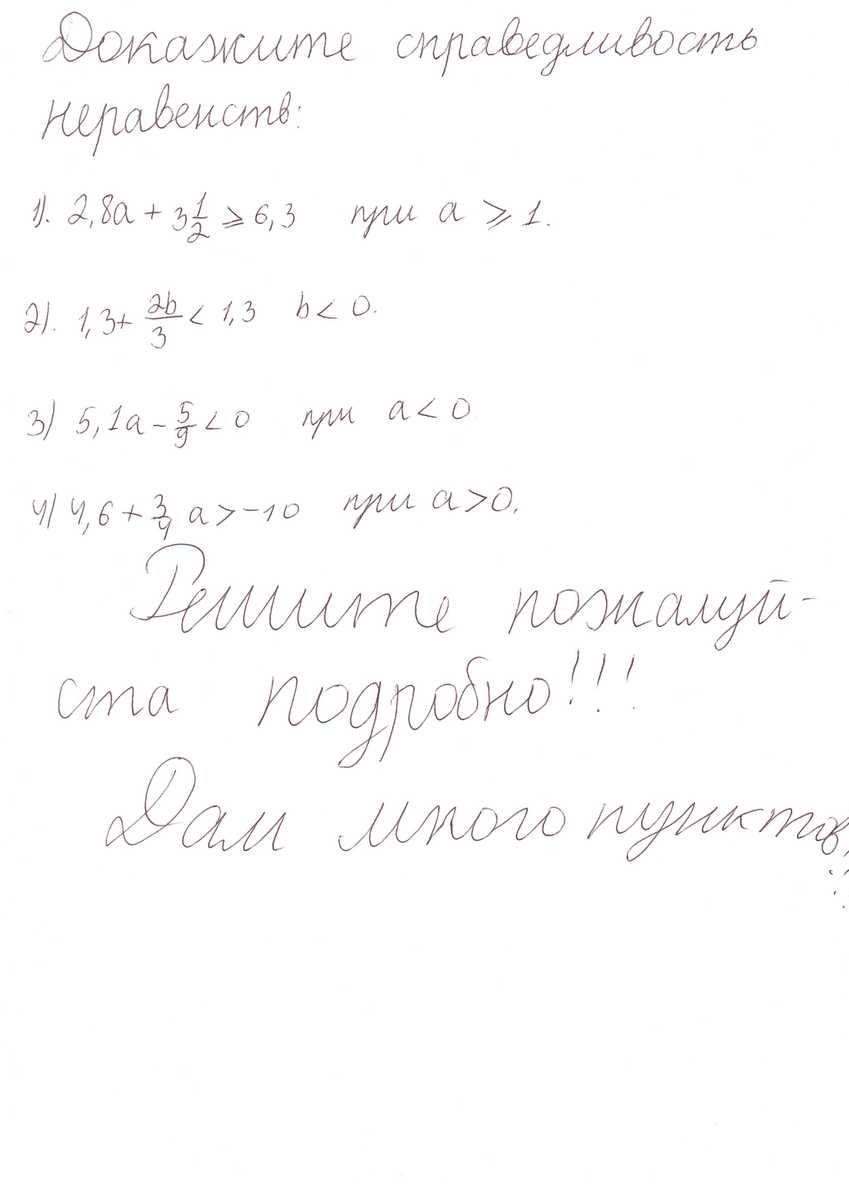 Докажите справедливость
неравенств:
1). 2,8a + 3 1/2 ⩾ 6,3 при a ⩾ 1.
2). 1,3 + 2b/3 < 1,3 b < 0.
3) 5,1a - 5/9 < 0 при a < 0
4) 4,6 + 3/4 a > -10 при a > 0.
Решите пожалуй-
ста подробно!!!
Дам много пунктов,